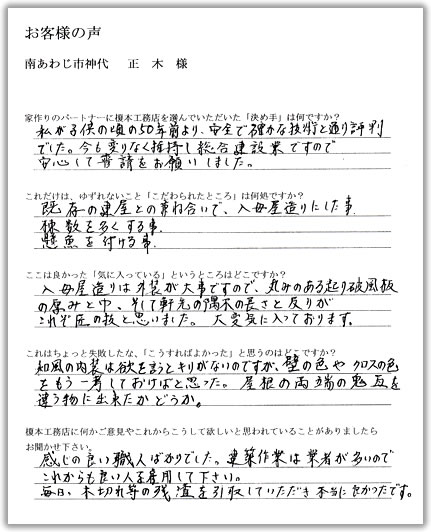 お客様の声
南あわじ市神代　正　木　様
家作りのパートナーに榎本工務店を選んでいただいた「決め手」は何ですか？
私が子供の頃の50年前より、安全で確かな技術と通り評判
でした。今も変りなく維持し総合建設業ですので
安心して普請をお願いしました。
これだけは、ゆずれないこと「こだわられたところ」は何処ですか？
既存の東屋との兼ね合いで、入母屋造りにした事.
棟数を多くする事.
懸魚を付ける事.
ここは良かった「気に入っている」というところはどこですか？
入母屋造りは外装が大事ですので、丸みのある起り破風板
の厚みと巾、そして軒先の隅木の長さと反りが
これぞ匠の技と思いました。大変気に入っております。
これはちょっと失敗したな、「こうすればよかった」と思うのはどこですか？
和風の内装は欲を言うとキリがないのですが、壁の色やクロスの色
をもう一考しておけばと思った。屋根の両端の鬼瓦を
違う物に出来たかどうか。
榎本工務店に何かご意見やこれからこうして欲しいと思われていることがありましたら
お聞かせ下さい。
感じの良い職人ばかりでした。建築作業は業者が多いので
これからも良い人を雇用して下さい。
毎日、木切れ等の残渣を引取していただき本当に良かったです。